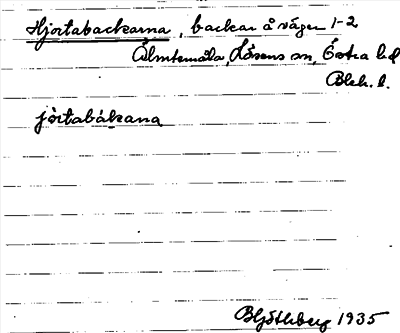 Hjortabackarna, backar å vägen 1-2
Älmtamåla, Lösens sn, Östra hd
Blek. l.
jòrtabákana
Bj. Göthberg 1935